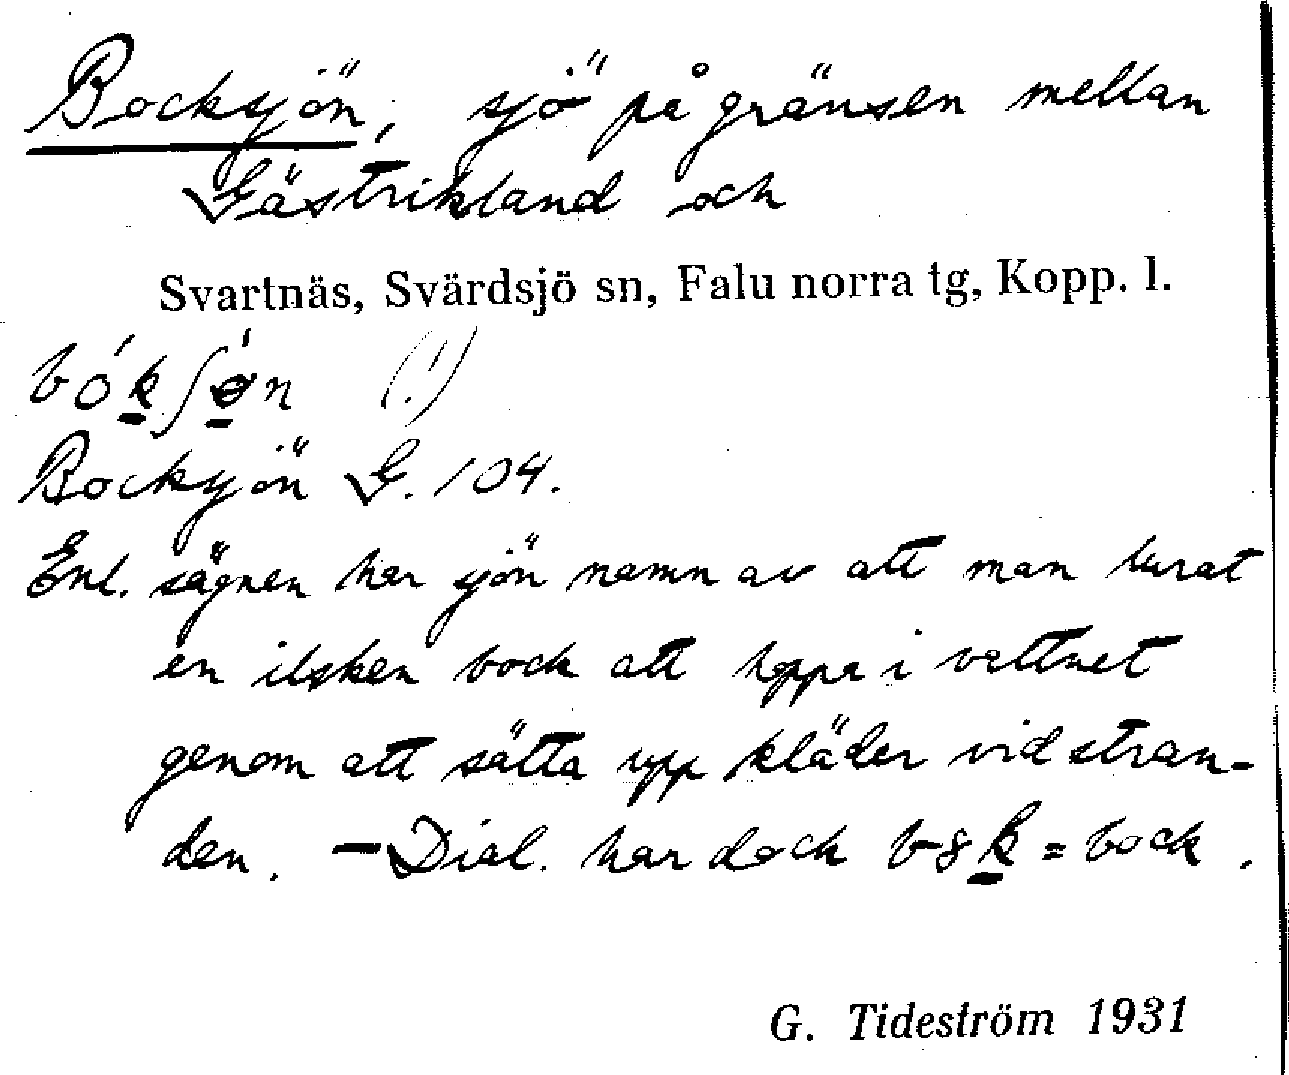 Bocksjön, sjö på gränsen mellan
Gästrikland och
Svartnäs, Svärdsjö sn, Falu norra tg, Kopp. l.
bók∫ǿn (!)
Bocksjön G. 104.
Enl. sägnen har sjön namn av att man lurat
en ilsken bock att hoppa i vattnet
genom att sätta upp kläder vid stran-
den. – Dial. har dock b8k = bock.
G. Tideström 1931